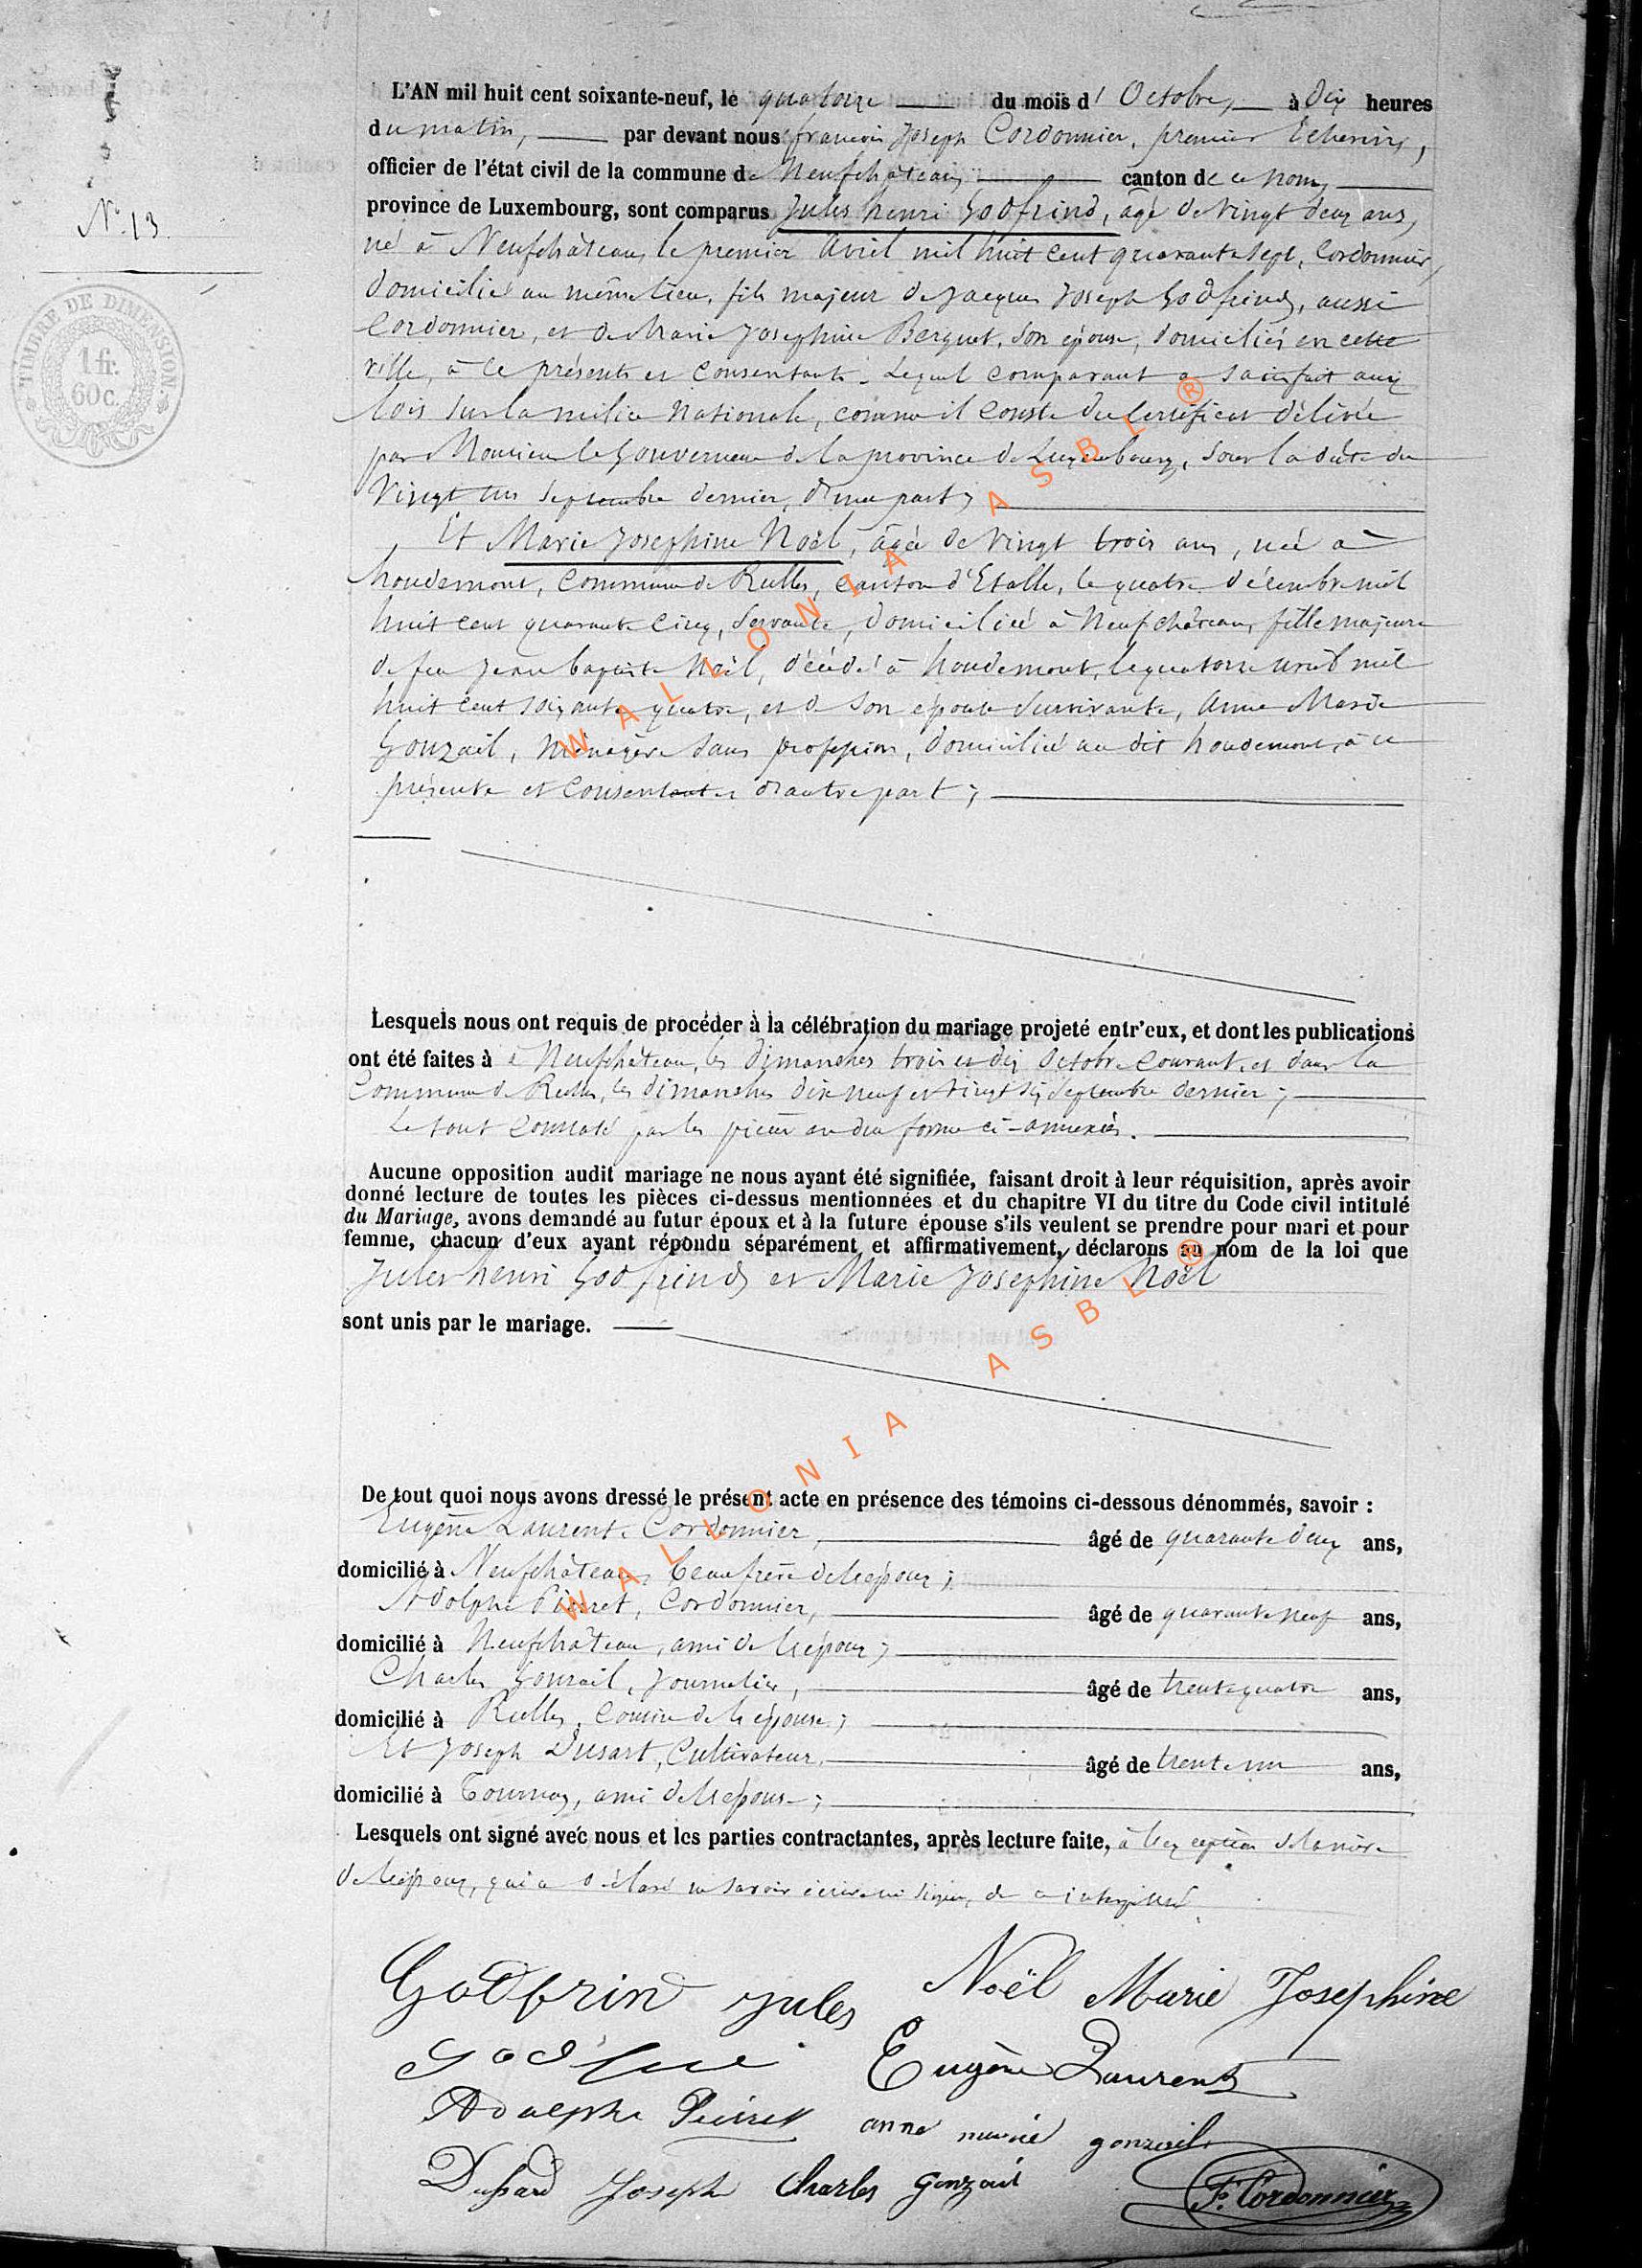 L'AN mil huit cent soixante-neuf, le quatorze du mois d' Octobre, à dix heures
du matin, par devant nous françois Joseph Cordonnier, premier Echevin,
officier de l'état civil de la commune de Neufchâteau, canton de ce nom,
province de Luxembourg, sont comparus Jules henri Godfrind, âgé de vingt deux ans,
né à Neufchâteau, le premier avril mil huit cent quarante sept, Cordonnier,
domicilié au même lieu, fils majeur de Jacques Joseph Godfrind, aussi
Cordonnier, et de Marie Josephine Berquet, son épouse, domiciliés en cette
ville, à ce présents et consentants. Lequel comparant a satisfait aux
lois sur la milice nationale, comme il conste du certificat délivré
par Monsieur le Gouverneur de la province de Luxembourg, sous la date du
Vingt un septembre dernier, d'une part;
N° 13.
TIMBRE DE DIMENSION.
1 fr.
60 c.
Et Marie Josephine Noël, âgée de vingt trois ans, née à
houdemont, commune de Rulles, canton d'Etalle, le quatre décembre mil
huit cent quarante cinq, Servante, domiciliée à Neufchâteau, fille majeure
de feu Jean baptiste Noël, décédé à houdemont, le quatorze avril mil
huit cent soixante quatre, et de son épouse survivante, Anne Marie
Gonzail, ménagère sans profession, domiciliée au dit houdemont, à ce
présente et consentante d'autre part;
Lesquels nous ont requis de procéder à la célébration du mariage projeté entr'eux, et dont les publications
ont été faites à à Neufchâteau, les dimanches trois et dix Octobre courant, et dans la
Commune de Rulles, les dimanches dix neuf et vingt six septembre dernier;
Le tout constaté par les pièces en due forme ci-annexées.
Aucune opposition audit mariage ne nous ayant été signifiée, faisant droit à leur réquisition, après avoir
donné lecture de toutes les pièces ci-dessus mentionnées et du chapitre VI du titre du Code civil intitulé
du Mariage, avons demandé au futur époux et à la future épouse s'ils veulent se prendre pour mari et pour
femme, chacun d'eux ayant répondu séparément et affirmativement, déclarons au nom de la loi que
Jules henri Godfrind et Marie Josephine Noël
sont unis par le mariage.
De tout quoi nous avons dressé le présent acte en présence des témoins ci-dessous dénommés, savoir :
Eugène Laurent, Cordonnier, âgé de quarante deux ans,
domicilié à Neufchâteau, beau frère de l'époux;
Adolphe Pierret, Cordonnier, âgé de quarante neuf ans,
domicilié à Neufchâteau, ami de l'époux;
Charles Gonzail, Journalier, âgé de trente quatre ans,
domicilié à Rulles, Cousin de l'épouse;
Et Joseph Dusart, Cultivateur, âgé de trente un ans,
domicilié à Tournay, ami de l'épouse;
Lesquels ont signé avec nous et les parties contractantes, après lecture faite, à l'exception de la mère
de l'époux, qui a déclaré ne savoir écrire ni signer, de ce interpellée.
Godfrin Jules Noël Marie Josephine
Eugène Laurent
Adolphe Pierret anne marie gonzail
Dussard Joseph Charles Gonzail F. Cordonnier
WALLONIA ASBL ®
WALLONIA ASBL ®